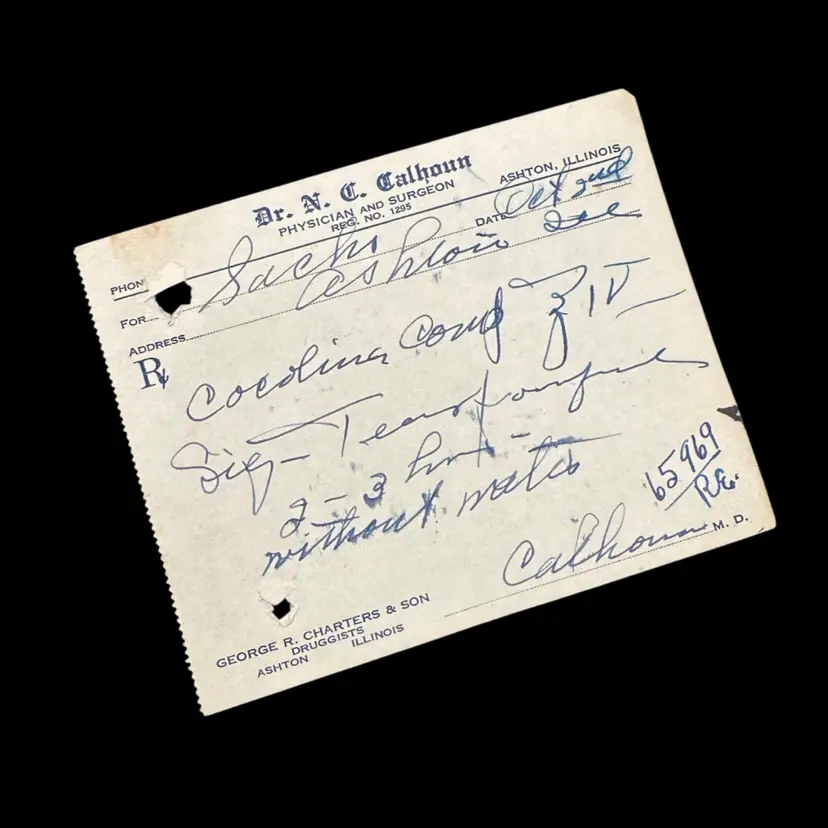 Dr. N. C. Calhoun
PHYSICIAN AND SURGEON
REG. NO. 1295
ASHTON, ILLINOIS
PHON
DATE Oct 2nd
FOR Sachs
ADDRESS Ashton Ill
Rx
Cocolina Comp ℥ IV
Sig - Teaspoonful
2 - 3 hrs -
without water
65969
R.E.
Calhoun M. D.
GEORGE R. CHARTERS & SON
DRUGGISTS
ASHTON ILLINOIS